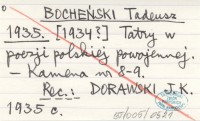 BOCHEŃSKI Tadeusz
1935. [1934?] Tatry w
poezji polskiej powojennej.
– Kamena nr 8-9.
Rec.: DORAWSKI J.K.
1935 c.